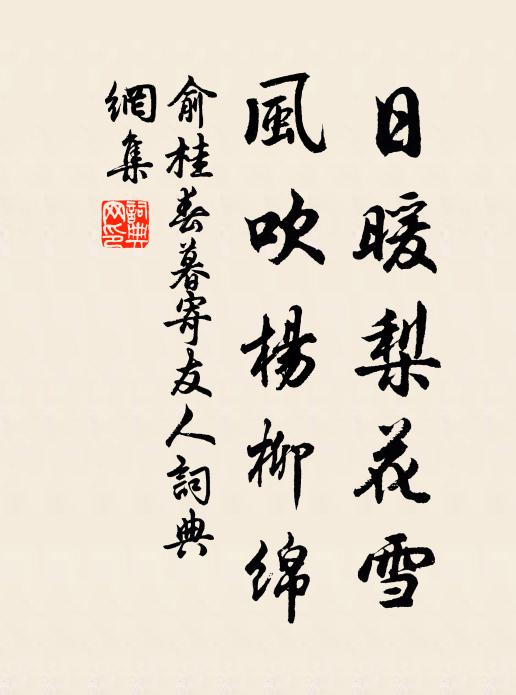 日暖梨花雪
風吹楊柳綿
俞桂春暮寄友人詞典
網集
詞典網印